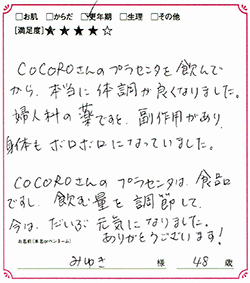 □お肌 □からだ □更年期 □生理 □その他
[満足度]★★★★☆
COCOROさんのプラセンタを飲んで
から、本当に体調が良くなりました。
婦人科の薬ですと、副作用があり、
身体もボロボロになっていました。
COCOROさんのプラセンタは、食品
ですし、飲む量を調節して、
今は、だいぶ元気になりました。
ありがとうございます!
お名前(本名orペンネーム)
みゆき 様 48歳